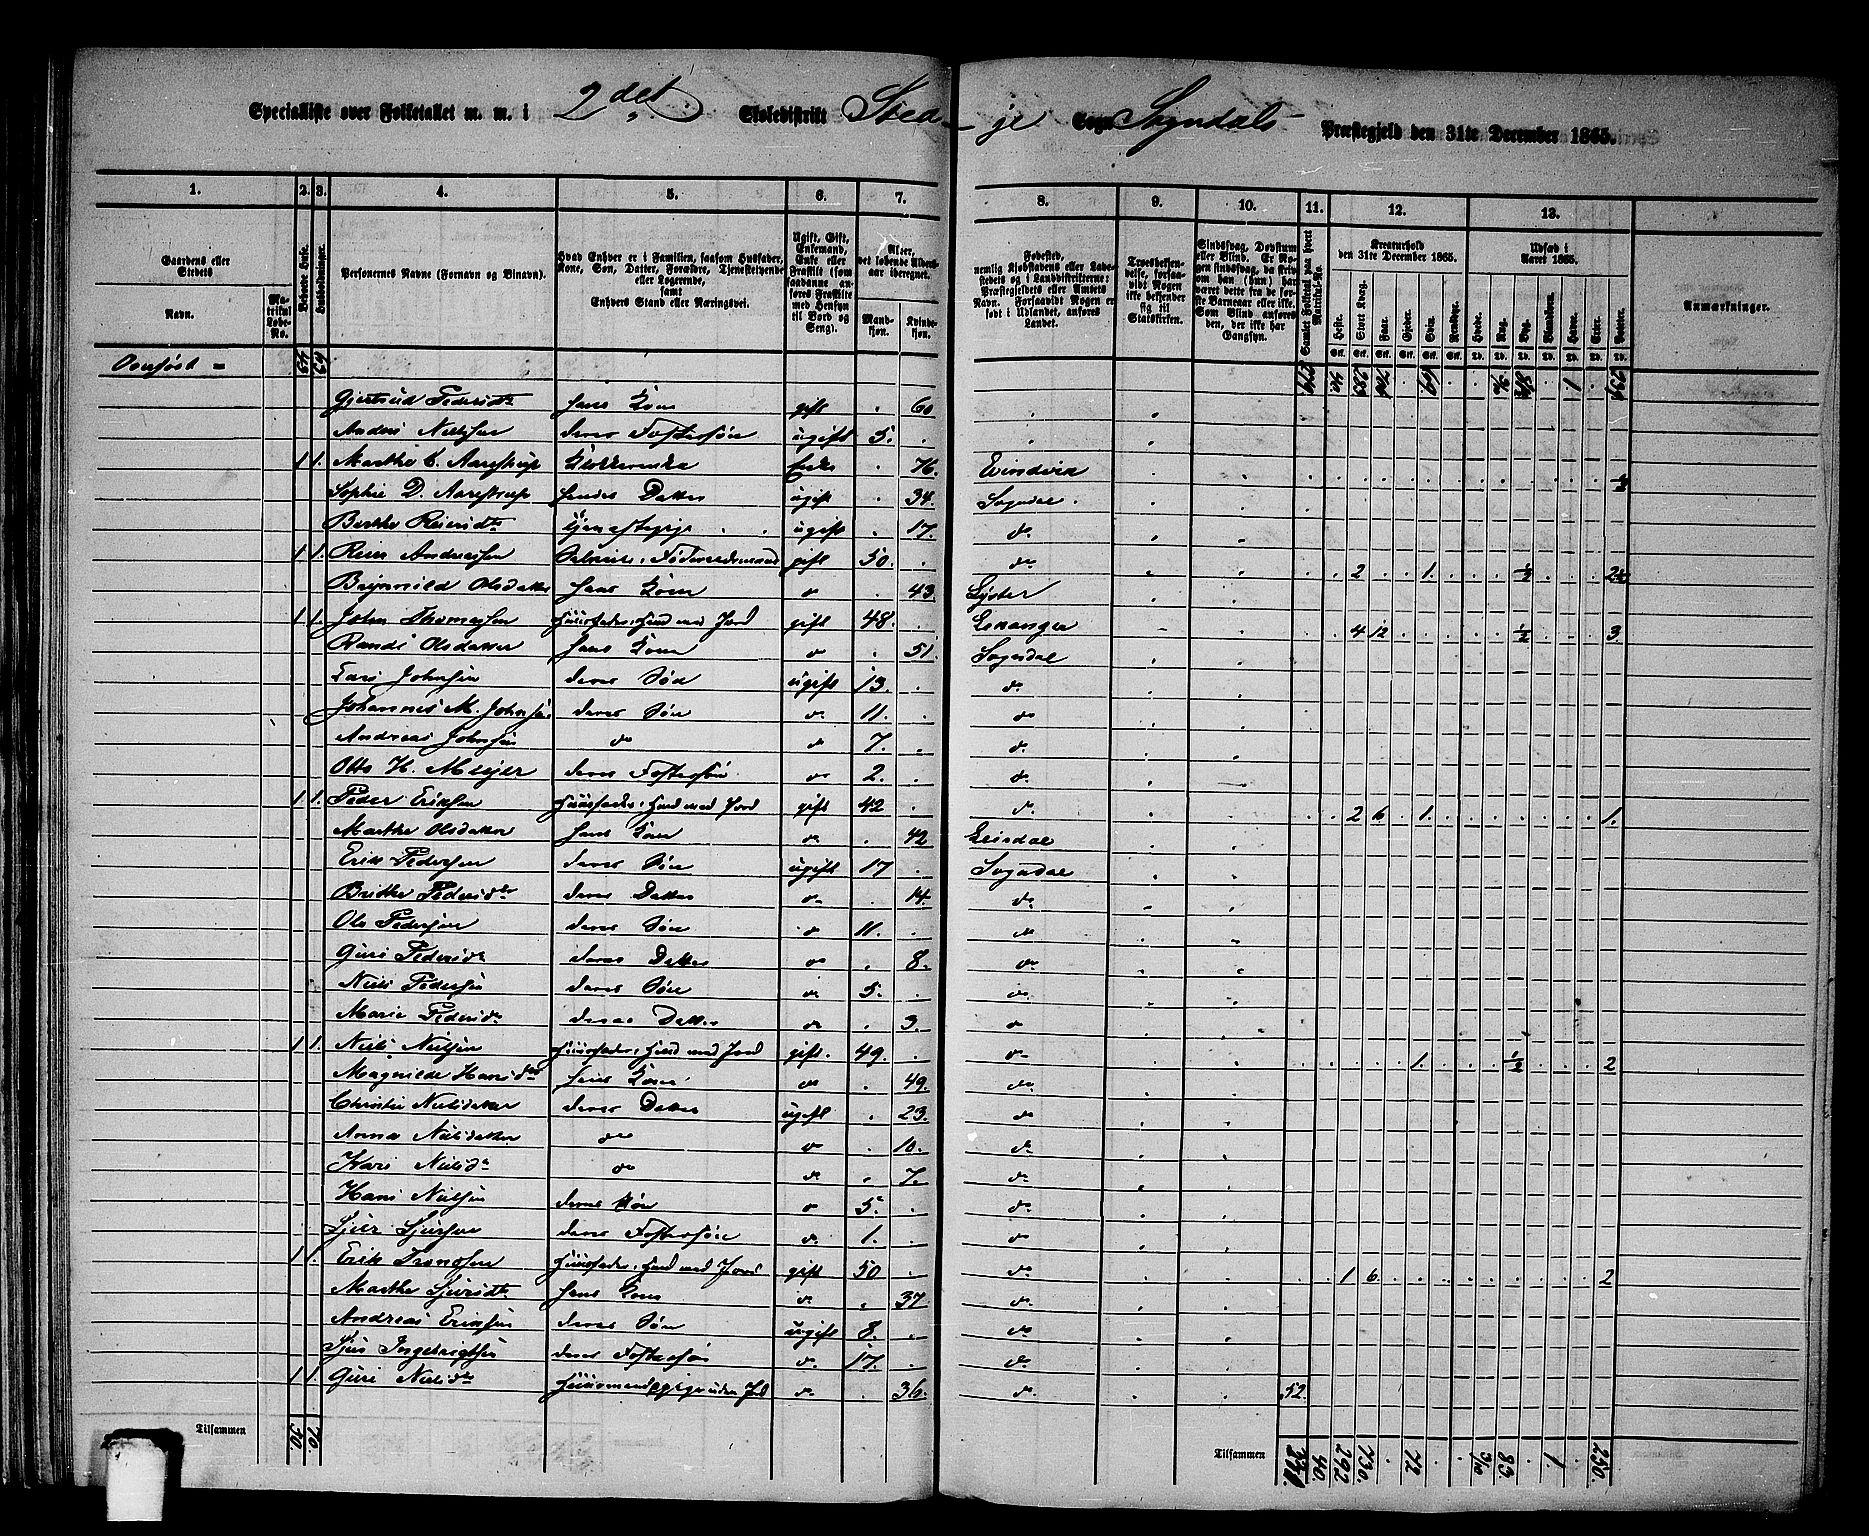 Specialliste over Folketallet m. m. i 2det Skoledistrikt Sted-je Sogn Sogndals Præstegjeld den 31te December 1865.
1. 2. 3. 4. 5. 6. 7. 8. 9. 10. 11. 12. 13.
Gaardens eller Stedets Navn. Matrikul Løbe-No. Beboede Huse. Huusholdninger. Personernes Navne (Fornavn og Binavn). Hvad Enhver er i Familien, saasom Husfader, Kone, Søn, Datter, Forældre, Tjenestetyende eller Logerende, samt Enhvers Stand eller Næringsvei. Ugift, Gift, Enkemand, Enke eller Fraskilt (som saadanne anføres Fraskilte med Hensyn til Bord og Seng). Alder, det løbende Alders-aar iberegnet. Mandkjøn. Kvindekjøn.
Fødested, nemlig Kjøbstadens eller Ladestedets og i Landdistrikterne: Præstegjeldets eller Amtets Navn. Forsaavidt Nogen er født i Udlandet, anføres Landet. Troesbekjendelse, forsaavidt Nogen ikke bekjender sig til Statskirken. Sindssvag, Døvstum eller Blind. Er Nogen sindssvag, da skrives om han (hun) har været dette fra de første Barneaar eller ikke. Som Blind anføres den, der ikke har Gangsyn. Samlet Folketal paa hvert Matrikul-No. Kreaturhold den 31te December 1865. Heste. Stort Kvæg. Faar. Gjeder. Svin. Rensdyr. Udsæd i Aaret 1865. Hvede. Rug. Byg. Blandkorn. Havre. Erter. Poteter. Anmærkninger.
Overført =
Gjertrud Pedersdtr hans Kone gift 60
Anders Nielsen deres Fostersøn ugift 5.
1 1. Marthe C. Aarestrup Enke 76. Evindvik
Sophie D. Aarestrup hendes Datter ugift 34. Sogndal
Berthe Reiersdtr Tjenestepige ugift 17. do
1 1. Reier Andersen gift 50. do 2 1. ½
Brynnild Olsdatter hans Kone do 43. Lyster
1 1. John Thomassen Huusfader, Huusmd med Jord gift 48. Lekanger 4 12 ½ 3.
Randi Olsdatter hans Kone do 51. Sogndal
Lars Johnsen deres Søn ugift 13. do
Johannes M. Johnsen deres Søn do 11. do
Andreas Johnsen do do 7. do
Otto H. Meyer deres Fostersøn do 2. do
1 1. Peder Eriksen Huusfader, Huusmd med Jord gift 42 do 2 6 1. 1.
Marthe Olsdatter hans Kone do 42 Leirdal
Erik Pedersen deres Søn ugift 17 Sogndal
Brithe Pedersdtr deres Datter do 14. do
Ole Pedersen deres Søn do 11. do
Guri Pedersdtr deres Datter do 8. do
Niels Pedersen deres Søn do 5. do
Marie Pedersdtr deres Datter do 3. do
1 1. Niels Nielsen Huusfader, Huusmd med Jord gift. 49. do 1. ½ 2
Magnilde Hansdtr hans Kone do 49. do
Christie Nielsdatter deres Datter ugift 23. do
Anna Nielsdatter do do 10. do
Kari Nielsdtr do do 7. do
Hans Nielsen deres Søn do 5. do
Sjur Sjursen deres Fostersøn do 1. do
1 1. Erik Huusfader, Huusmd med Jord gift 50 do 1 6 2
Marthe Sjursdtr hans Kone do 37 do
Andreas Eriksen deres Søn ugift 8. do
Sjur Ingebrigtsen deres Fostersøn do 17. do
1 1. Guri Nielsdtr do 36. do 52.
Tilsammen 70. Tilsammen 40. 292 730. 72 83 1 250.